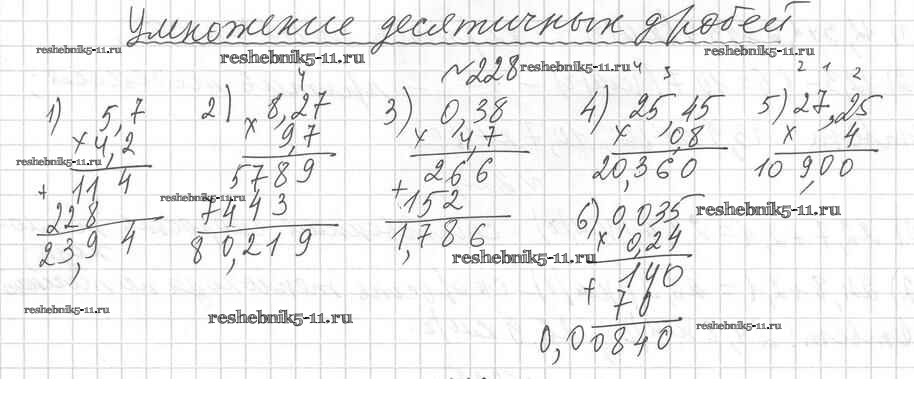 Умножение десятичных дробей
reshebnik5-11.ru
reshebnik5-11.ru
reshebnik5-11.ru
№228
reshebnik5-11.ru
4
4 3
2 1 2
1) 5,7
× 4,2
+ 114
228
23,94
2) 8,27
× 9,7
5789
7443
80,219
3) 0,38
× 4,7
266
+ 152
1,786
4) 25,45
× ,08
20,360
5) 27,25
× 4
10900
6) 0,035
× 0,24
+ 140
70
0,00840
reshebnik5-11.ru
reshebnik5-11.ru
reshebnik5-11.ru
reshebnik5-11.ru
reshebnik5-11.ru
reshebnik5-11.ru
reshebnik5-11.ru